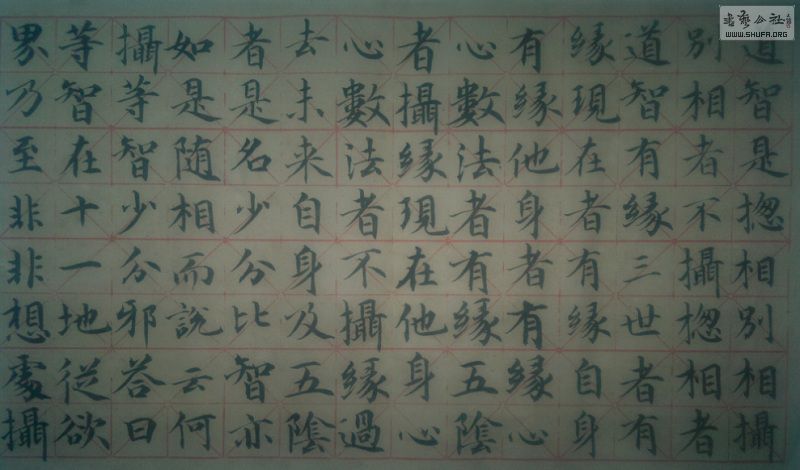 道智是揔相別相攝
別相者不攝揔相者
道智有緣三世者有
緣現在者有緣自身
有緣他身者有緣心
心數法者有緣五陰
者攝緣現在他身心
心數法者不攝緣過
去未来自身及五陰
者是名少分比智亦
如是随相而說云何
攝等智少分邪荅曰
等智在十一地從欲
界乃至非非想處攝
书艺公社
WWW.SHUFA.ORG